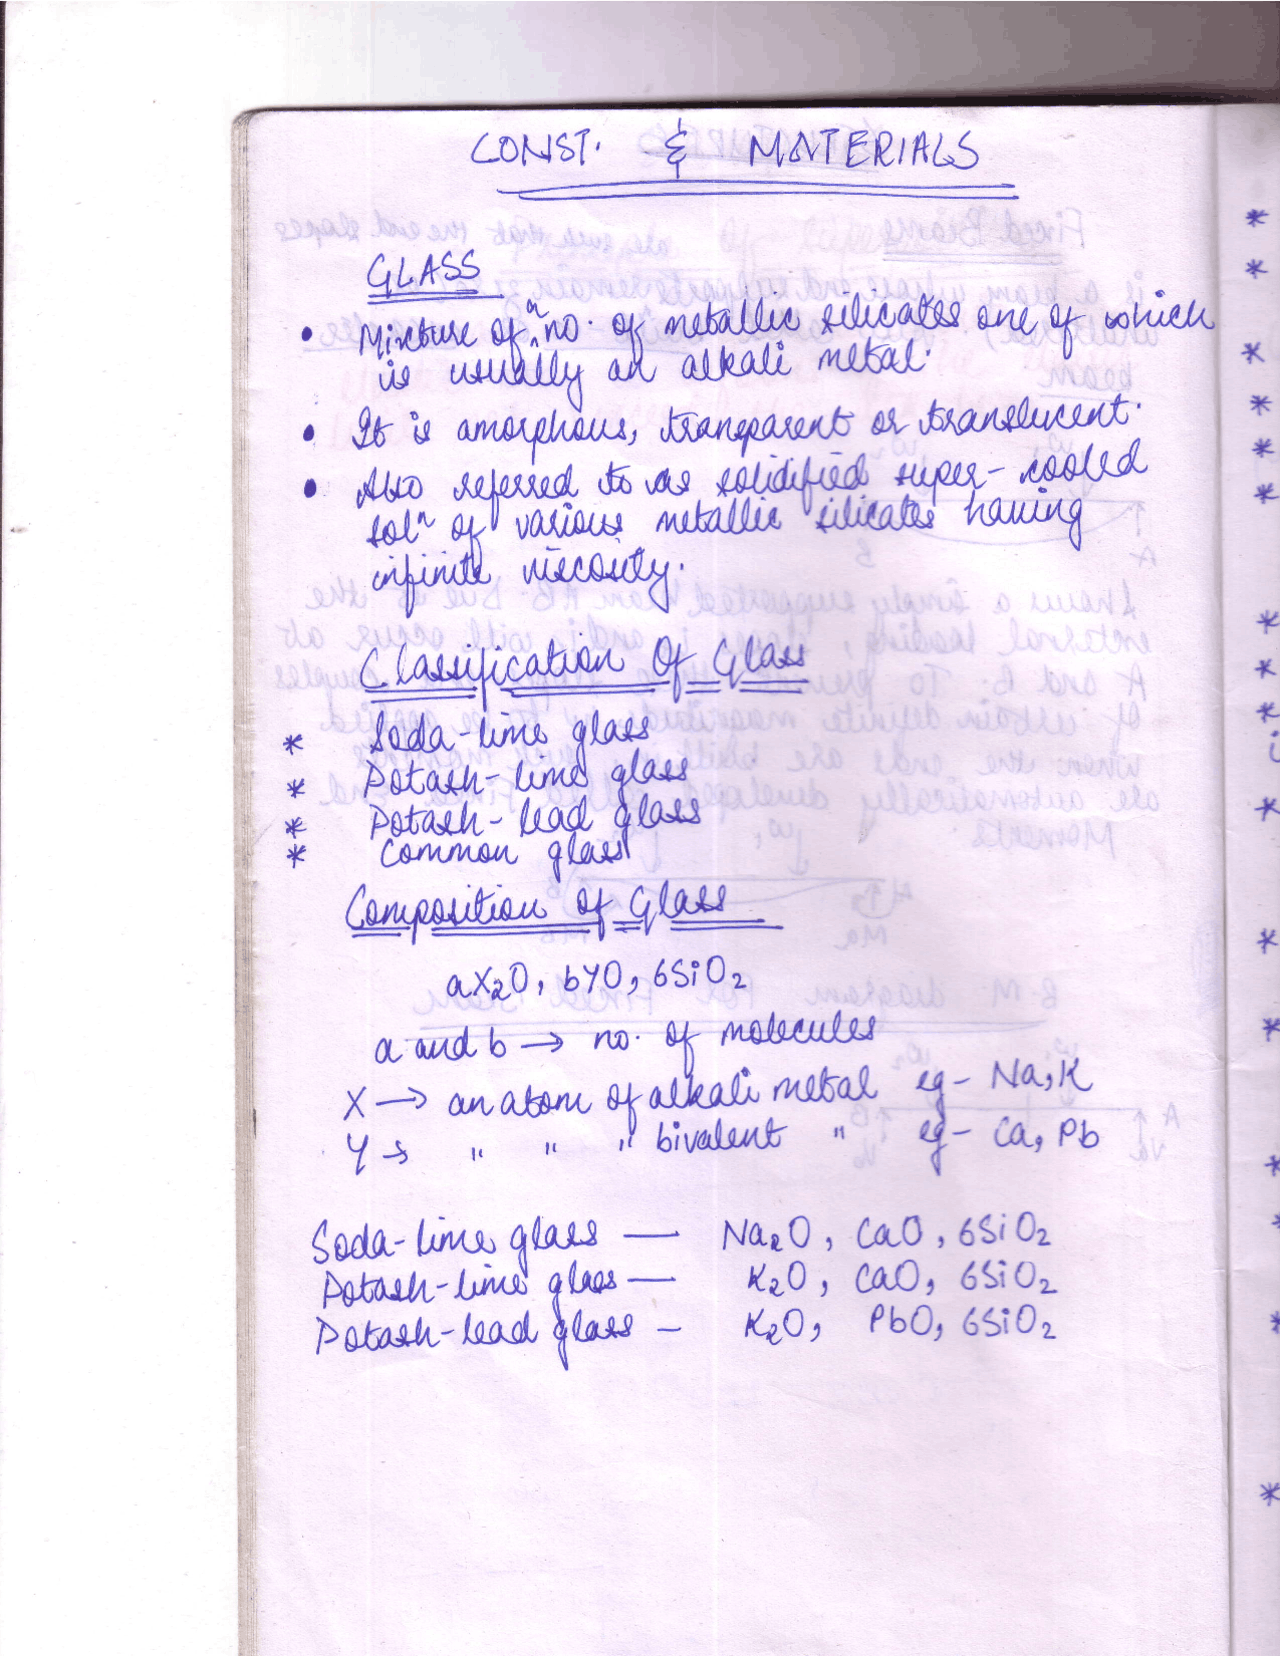 CONST. & MATERIALS
GLASS
• Mixture of a no. of metallic silicates one of which
is usually an alkali metal.
• It is amorphous, transparent or translucent.
• Also referred to as solidified super-cooled
solⁿ of various metallic silicates having
infinite viscosity.
Classification Of Glass
* Soda-lime glass
* Potash-lime glass
* Potash-lead glass
* Common glass
Composition of Glass
aX₂O, bYO, 6SiO₂
a and b → no. of molecules
X → an atom of alkali metal eg- Na, K
Y → " " " bivalent " eg- Ca, Pb
Soda-lime glass — Na₂O, CaO, 6SiO₂
Potash-lime glass — K₂O, CaO, 6SiO₂
Potash-lead glass — K₂O, PbO, 6SiO₂